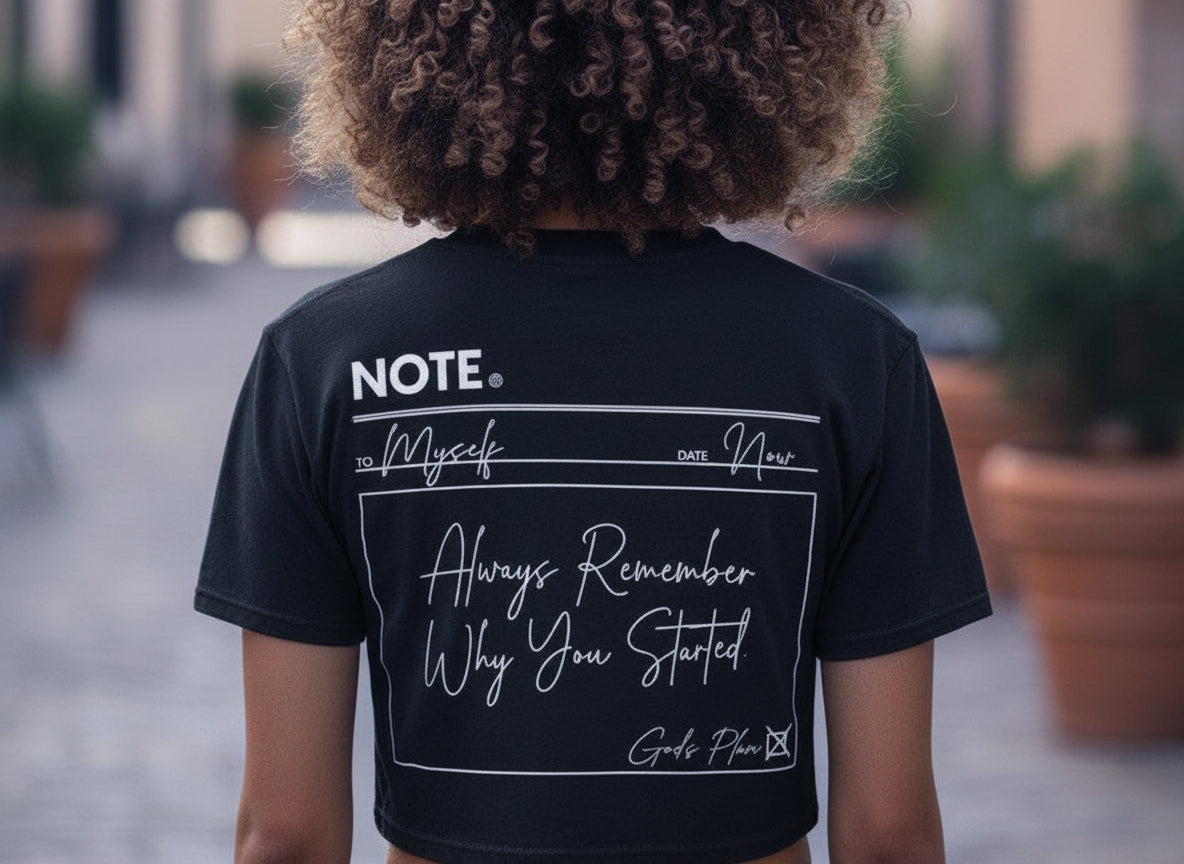 NOTE.
TO Myself DATE Now
Always Remember
Why You Started.
Gods Plan